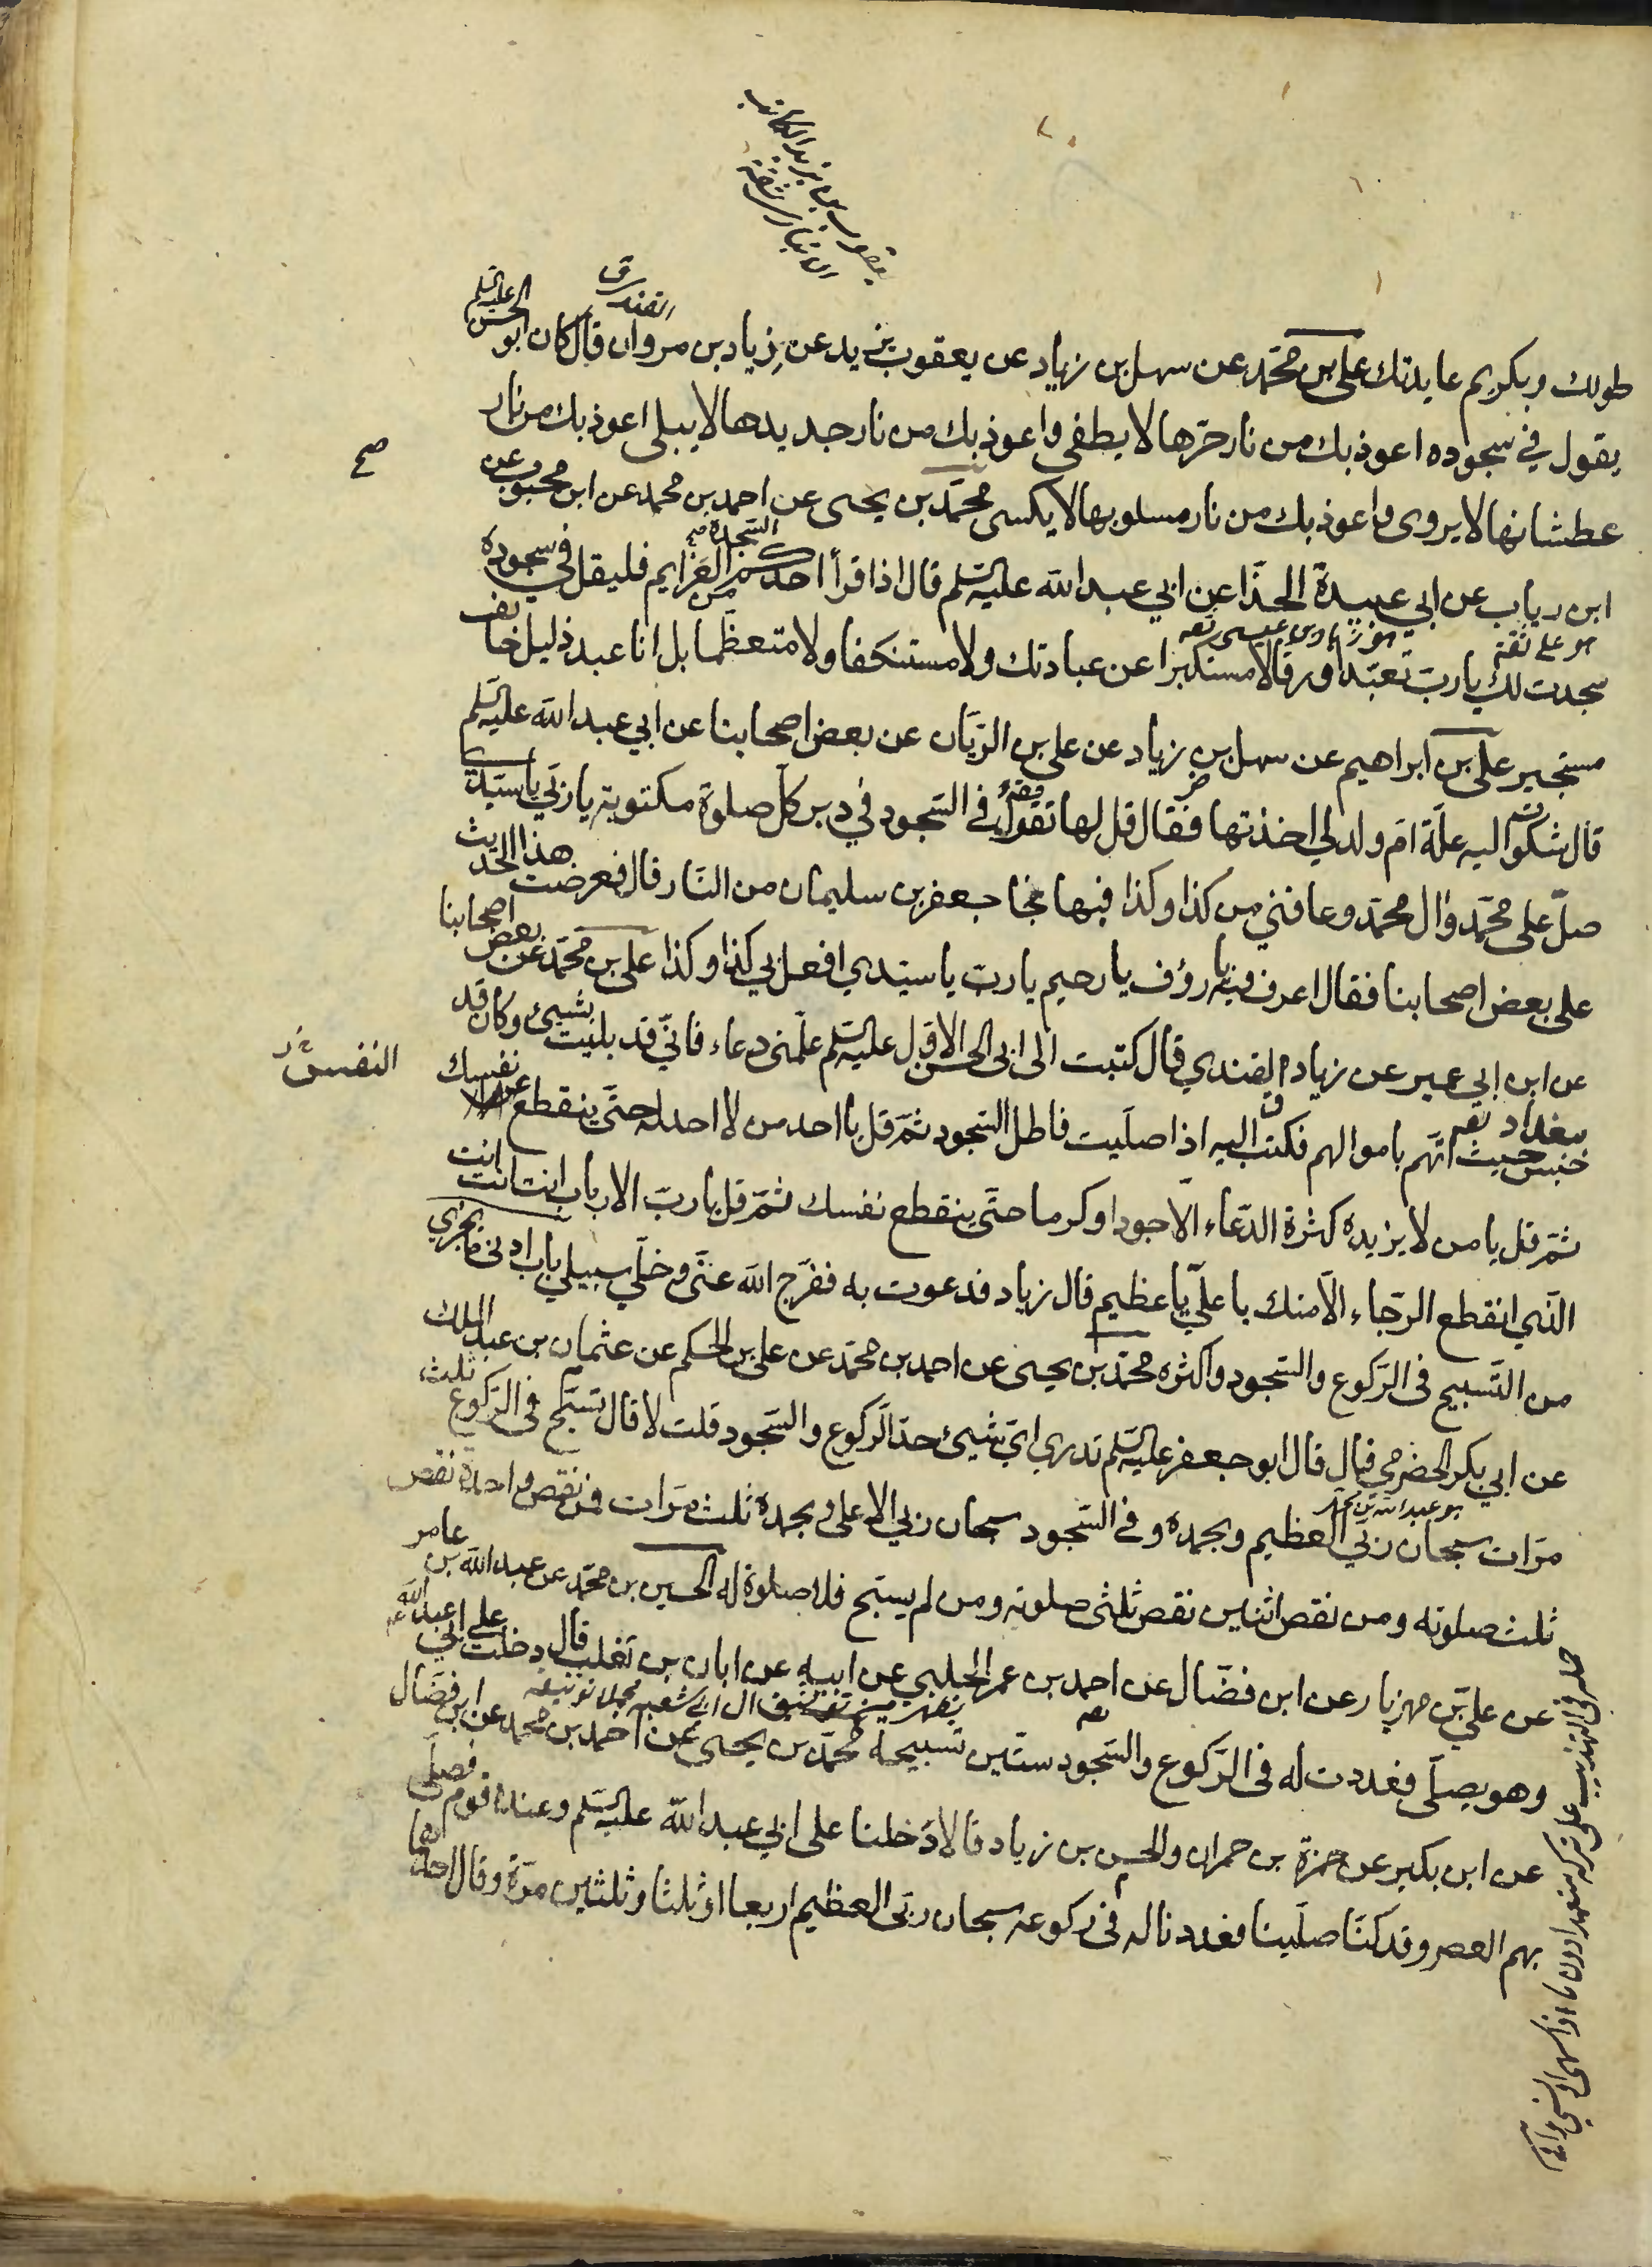 يعقوب بن يزيد الكاتب
الانباري ثقة
القندي ق
طولك وبكريم عايدتك علي بن محمد عن سهل بن زياد عن يعقوب بن يزيد عن زياد بن مروان قال كان ابو الحسن عليه السلم
يقول في سجوده اعوذ بك من نار حرها لا يطفى واعوذ بك من نار جديدها لا يبلى اعوذ بك من نار
صح
عطشانها لا يروى واعوذ بك من نار مسلوبها لا يكسى محمد بن يحيى عن احمد بن محمد عن ابن محبوب عن
ابن رياب عن ابي عبيدة الحذا عن ابي عبد الله عليه السلم قال اذا قرأ احدكم السجدة من العزايم فليقل في سجوده
هو علي ثقة
سجدت لك يا رب تعبدا ورقا لا مستكبرا عن عبادتك ولا مستنكفا ولا متعظما بل انا عبد ذليل خائف
مستجير علي بن ابراهيم عن سهل بن زياد عن علي بن الريان عن بعض اصحابنا عن ابي عبد الله عليه السلم
قال شكوت اليه علة ام ولد لي اخذتها فقال قل لها تقول في السجود في دبر كل صلوة مكتوبة يا ربي يا سيدي
صل على محمد وال محمد وعافني من كذا وكذا فبها نجا جعفر بن سليمان من النار قال فعرضت هذا الحديث
على بعض اصحابنا فقال اعرف فيه يا رؤف يا رحيم يا رب يا سيدي افعل بي كذا وكذا علي بن محمد عن بعض اصحابنا
عن ابن ابي عمير عن زياد القندي قال كتبت الى ابي الحسن الاول عليه السلم علمني دعاء فاني قد بليت بشيئ وكان قد
النفس
حبس ببغداد حيث اتهم باموالهم فكتب اليه اذا صليت فاطل السجود ثم قل يا احد من لا احد له حتى ينقطع نفسك
ثم قل يا من لا يزيده كثرة الدعاء الا جودا وكرما حتى ينقطع نفسك ثم قل يا رب الارباب انت انت انت
الذي انقطع الرجاء الا منك يا علي يا عظيم قال زياد فدعوت به ففرج الله عني وخلي سبيلي باب ادنى ما يجزي
من التسبيح في الركوع والسجود واكثره محمد بن يحيى عن احمد بن محمد عن علي بن الحكم عن عثمان بن عبد الملك
عن ابي بكر الحضرمي قال قال ابو جعفر عليه السلم تدري اي شيئ حد الركوع والسجود قلت لا قال تسبح في الركوع ثلث
هو عبد الله بن محمد
مرات سبحان ربي العظيم وبحمده وفي السجود سبحان ربي الاعلى وبحمده ثلث مرات فمن نقص واحدة نقص
ثلث صلوته ومن نقص اثنين نقص ثلثي صلوته ومن لم يسبح فلا صلوة له الحسين بن محمد عن عبد الله بن عامر
عن علي بن مهزيار عن ابن فضال عن احمد بن عمر الحلبي عن ابيه عن ابان بن تغلب قال دخلت على ابي عبد الله
وهو يصلي فعددت له في الركوع والسجود ستين تسبيحة محمد بن يحيى عن احمد بن محمد عن ابن فضال
عن ابن بكير عن حمزة بن حمران والحسن بن زياد قالا دخلنا على ابي عبد الله عليه السلم وعنده قوم فصلى
بهم العصر وقد كنا صلينا فعددنا له في ركوعه سبحان ربي العظيم اربعا او ثلثا وثلثين مرة وقال احدهما
حمله في التهذيب على تركه متعمدا دون ما اذا